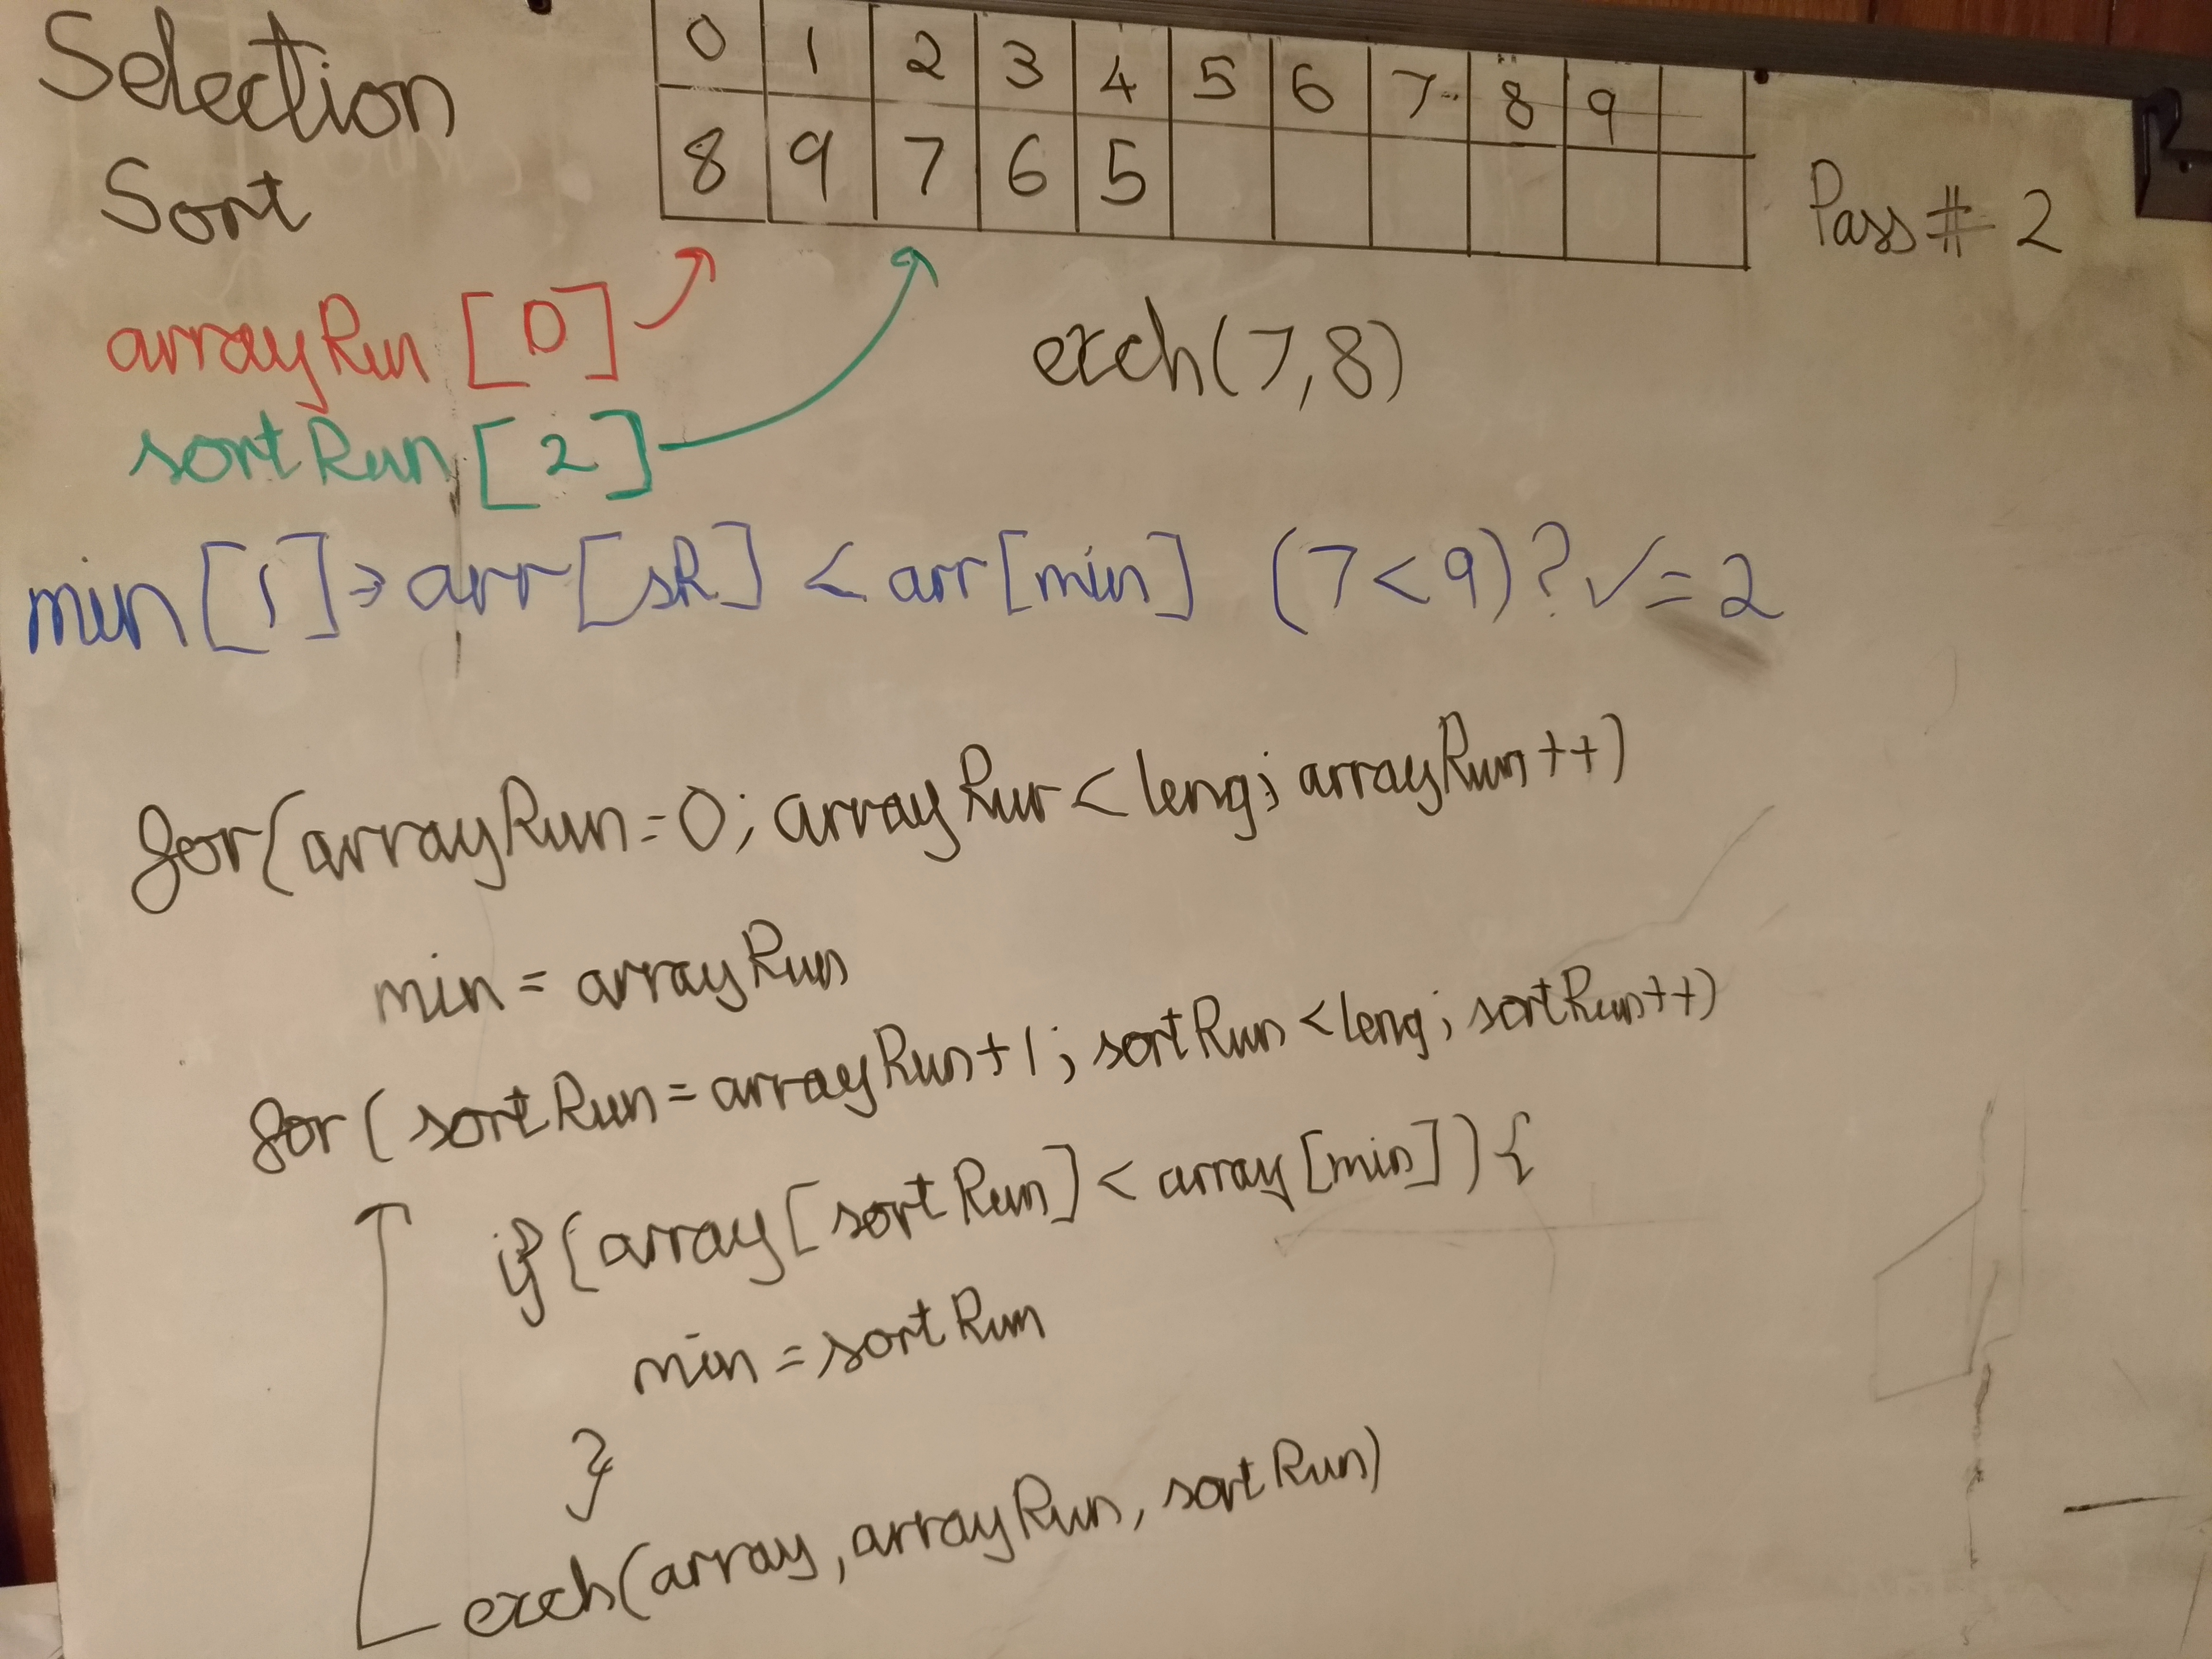 Selection
Sort
0 1 2 3 4 5 6 7 8 9
8 9 7 6 5
Pass # 2
arrayRun [0]
exch(7,8)
sortRun [2]
min [1] → arr[sR] < arr[min] (7<9)? ✓ = 2
for(arrayRun=0; arrayRun<leng; arrayRun++)
min = arrayRun
for(sortRun=arrayRun+1; sortRun<leng; sortRun++)
if(array[sortRun]<array[min]){
min = sortRun
}
exch(array, arrayRun, sortRun)